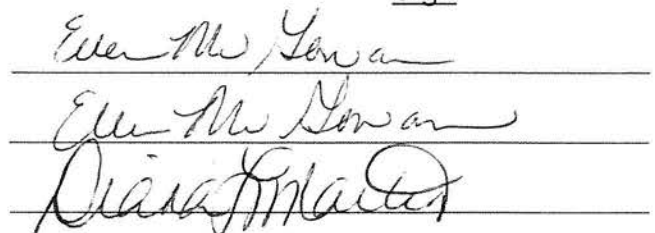 Ellen McGowan
Ellen McGowan
Diana L Martin